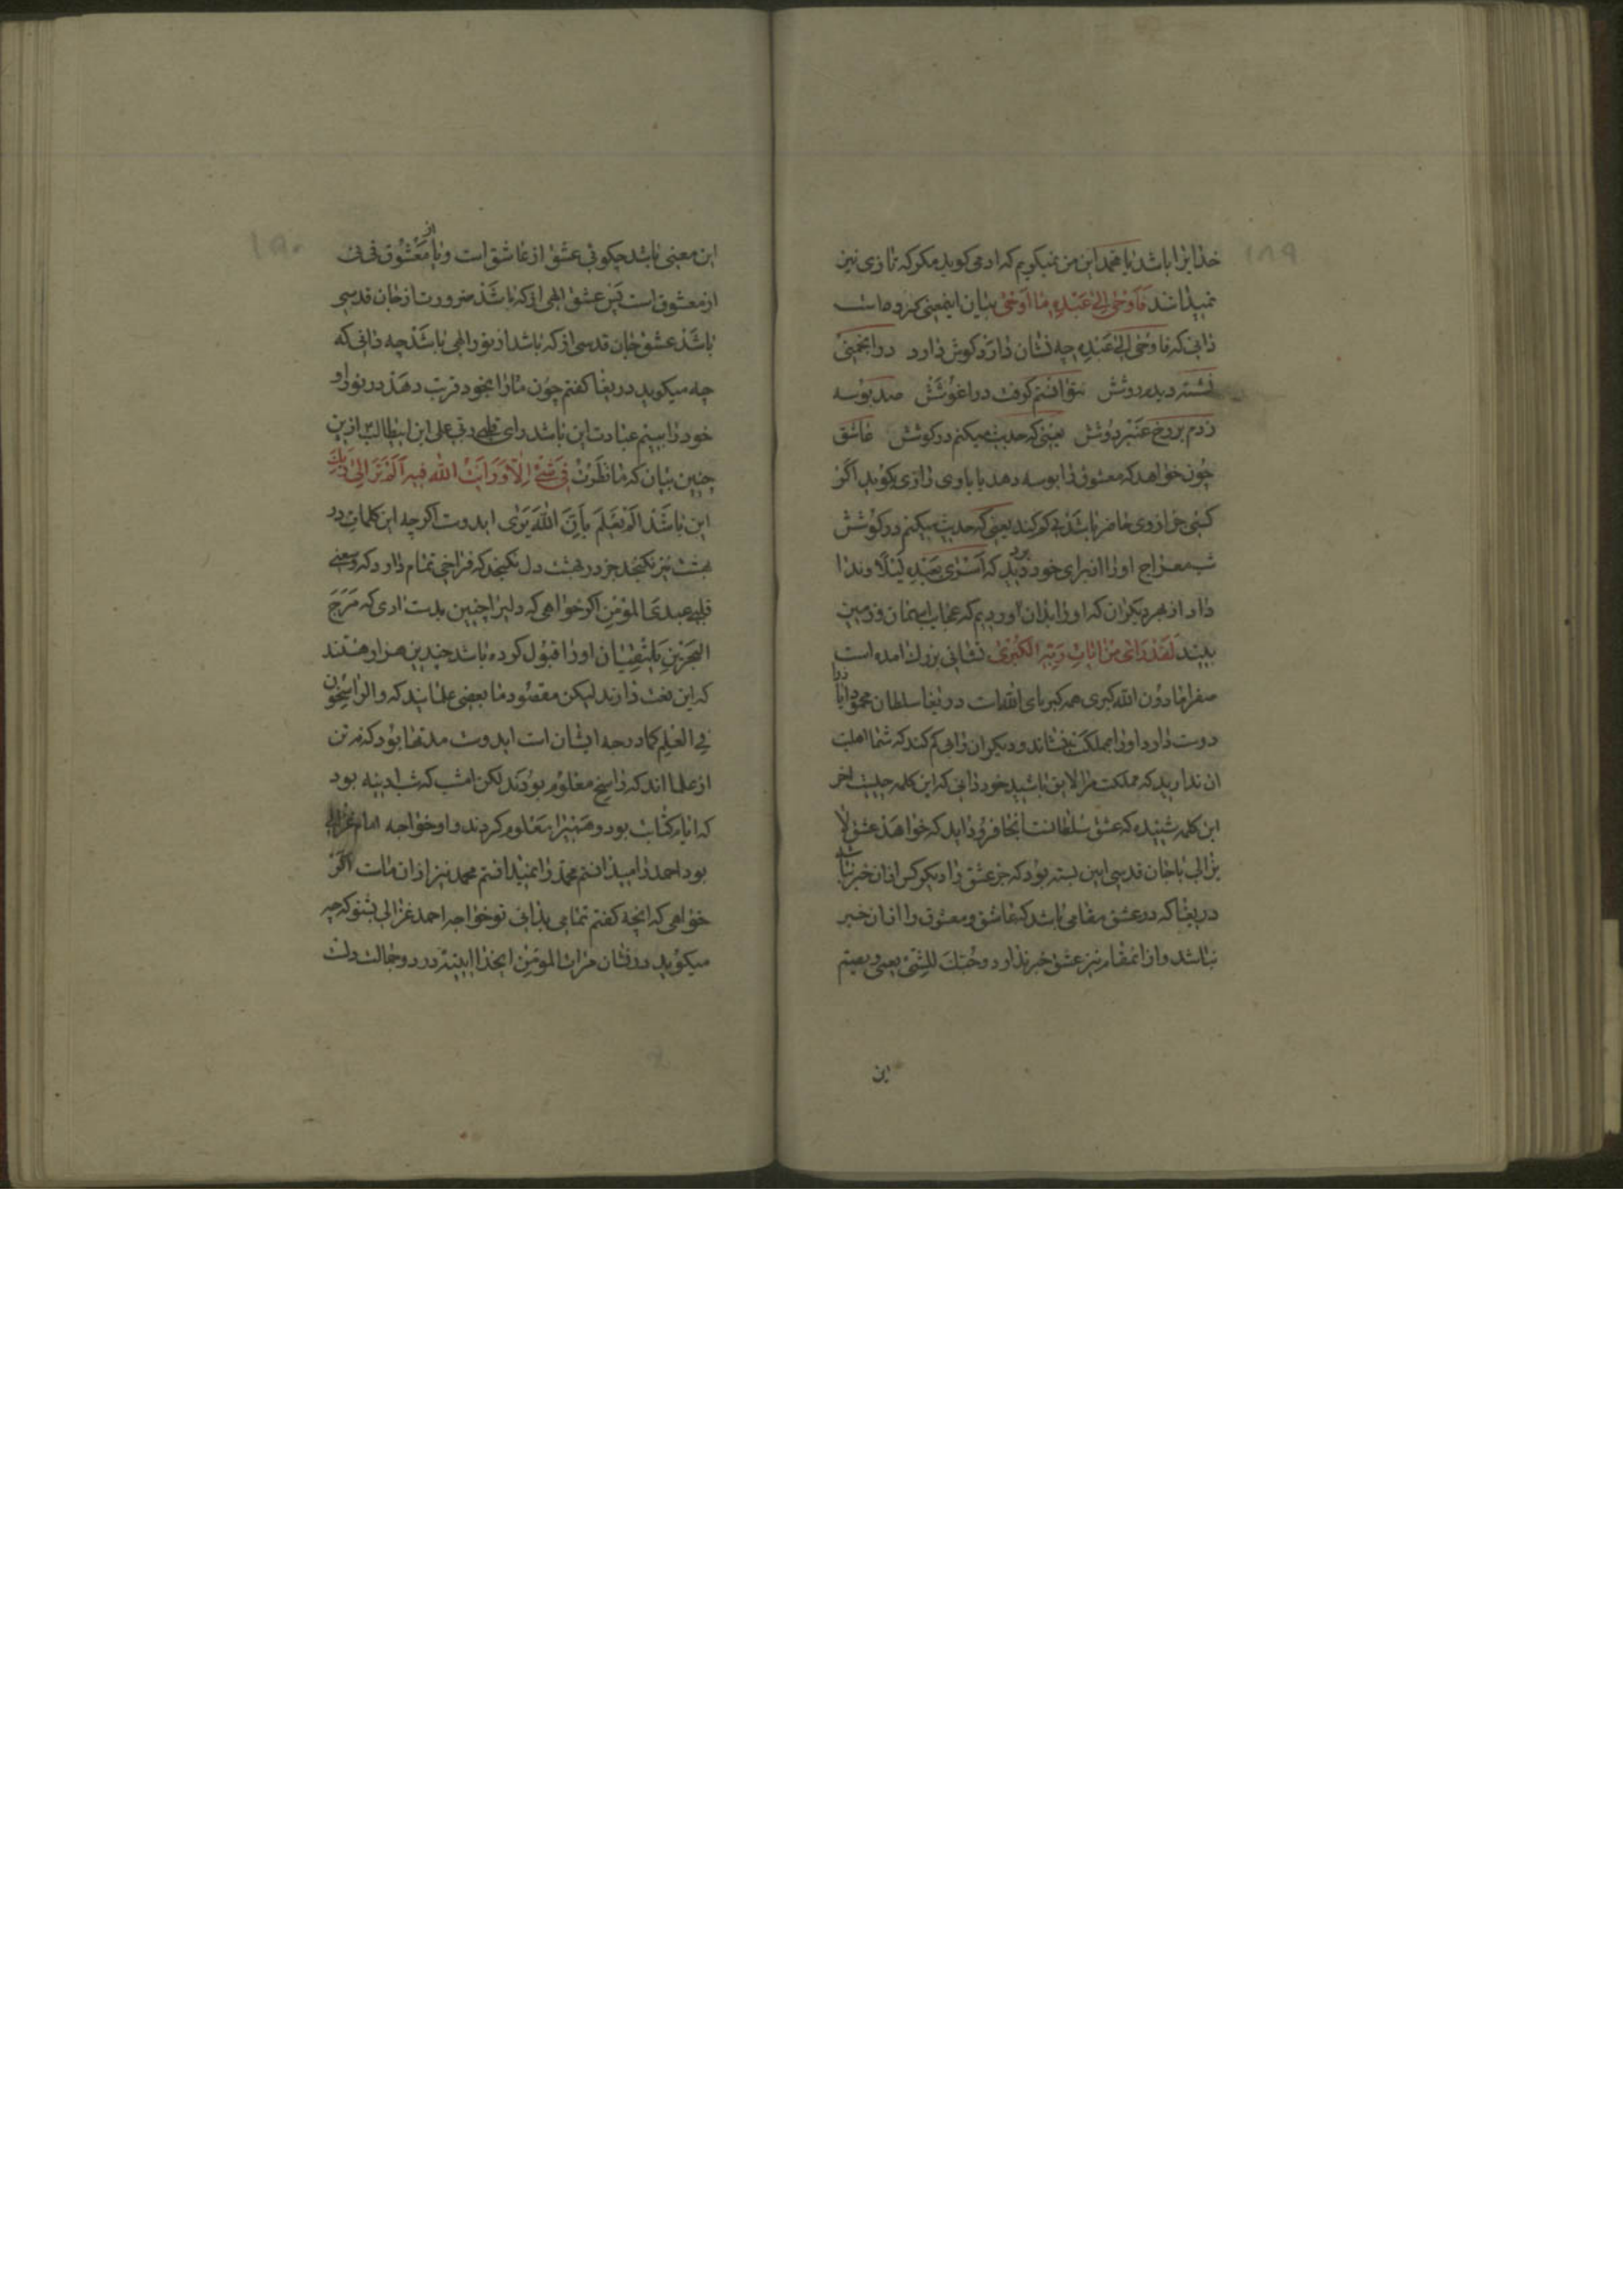 ۱۸۹
خدایرا باشد یا محمد این من نمیگویم که او می گوید مگر که تازی نیز
نمیداند فَاَوْحٰی اِلیٰ عَبْدِهِ مَا اَوْحیٰ بیان اینمعنی کرده است
دانی که فاوحی الی عَبْدِه چه نشان دارد گوش دار در انجمنی
نشسته دیدم دوشش نتوانستم گرفت در اغوشش صد بوسه
زدم بر رخ عنبر پوشش یعنی که حدیث میکنم در گوشش عاشق
چون خواهد که معشوق را بوسه دهد یا با وی رازی بگوید اگر
کسی جز از وی حاضر باشد چکند یعنی که حدیث میکنم در گوشش
شب معراج او را از برای خود برد که اَسْریٰ بِعَبْدِهِ لَیْلاً و ندا
داد از بهر دیگران که او را بدان اوردیم که عجایب اسمان و زمین
بیند لَقَدْ رَایٰ مِنْ اٰیَاتِ رَبِّهِ الکُبْریٰ نشانی بزرگ امده است
دون الله کبری همه کبریای الله است دریغا سلطان محمود ایاز را
دوست دارد او را بمملکت بنشاند و دیگران را هم کند که شما اهلیت
ان ندارید که مملکت مرا لایق باشید خود دانی که این کلمه چیست اخر
این کلمه شنیده که عشق سلطانست انجا فرود اید که خواهد عشق لا
یزالی با جان قدسی این بسته بود که جز عشق را دیگر کس از ان خبر نباشد
دریغا که در عشق مقامی باشد که عاشق و معشوق را از ان خبر
نباشد و از انمقام نیز عشق خبر ندارد و حُبُّکَ لِلشَّیْءِ یعمی و یصم
این
۱۹۰
این معنی باشد چگوئی عشق از عاشق است و یا از مَعْشُوق نی نی
از معشوق است پس عشق الهی از که باشد ضرورت از جان قدسی
باشد عشق جان قدسی از که باشد از نور الهی باشد چه دانی که
چه میگوید دریغا گفتم چون ما را بخود قربت دهد در نور او
خود را بینیم عبارت این باشد رای قلبی ربی علی ابن ابیطالب از ین
چنین بیان که ما نَظَرْتُ فِی شَیْءٍ اِلّا وَ رَاَیْتُ الله فیه اَلَمْ تَرَ اِلیٰ رَبِّکَ
این باشد اَلَمْ یَعْلَمْ بِاَنَّ اللهَ یَریٰ ایدوست اگر چه این کلمات در
بهشت نیز نگنجد جز در بهشت دل نگنجد که فراخی تمام دارد که وسعنی
قلب عبدی المؤمن اگر خواهی که دلیرا چنین بدست اری که مَرَجَ
البَحْرَیْنِ یَلْتَقِیَان او را قبول کرده باشد چندین هزار هستند
که این نعت دارند لیکن مقصود ما بعضی علمایند که والراسخون
فی العلم کما درجه ایشان است ایدوست مدتها بود که نه تن
از علما اند که راسخ معلوم بودند لکن امشب که شب ادینه بود
که ایام کتابت بود دهمین را معلوم کردند و او خواجه امام غزالی
بود احمد را میدانستم محمد را نمیدانستم محمد نیز از ان ماست اگر
خواهی که انچه گفتم تمامی بدانی تو خواجه احمد غزالی بشنو که چه
میگوید در نشان مرات المؤمن ایخدا اینه در دو جمالت دلت